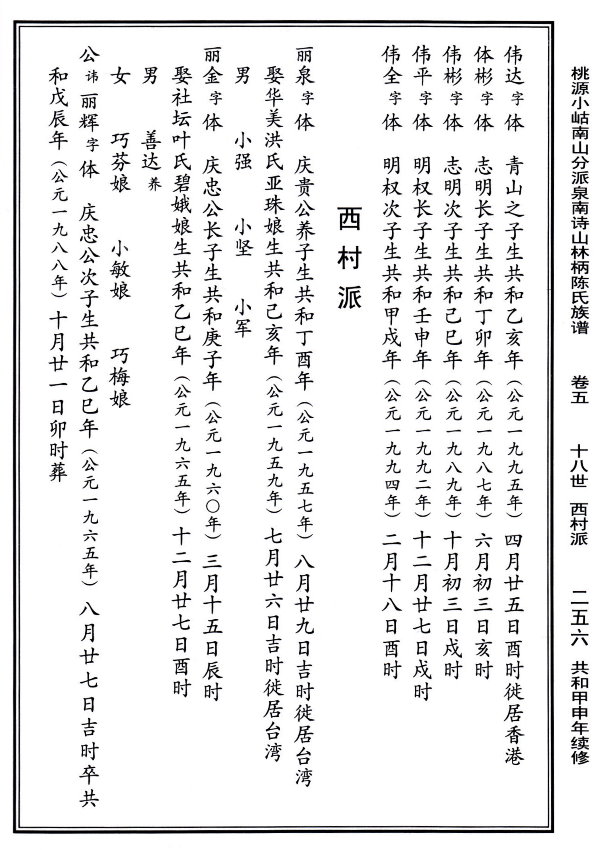 桃源小岵南山分派泉南诗山林柄陈氏族谱 卷五 十八世 西村派 二五六 共和甲申年续修
伟达字体 青山之子生共和乙亥年（公元一九九五年）四月廿五日酉时徙居香港
体彬字体 志明长子生共和丁卯年（公元一九八七年）六月初三日亥时
伟彬字体 志明次子生共和己巳年（公元一九八九年）十月初三日戌时
伟平字体 明权长子生共和壬申年（公元一九九二年）十二月廿七日戌时
伟全字体 明权次子生共和甲戌年（公元一九九四年）二月十八日酉时
西村派
丽泉字体 庆贵公养子生共和丁酉年（公元一九五七年）八月廿九日吉时徙居台湾
娶华美洪氏亚珠娘生共和己亥年（公元一九五九年）七月廿六日吉时徙居台湾
男 小强 小坚 小军
丽金字体 庆忠公长子生共和庚子年（公元一九六〇年）三月十五日辰时
娶社坛叶氏碧娥娘生共和乙巳年（公元一九六五年）十二月廿七日酉时
男 善达养
女 巧芬娘 小敏娘 巧梅娘
公讳丽辉字体 庆忠公次子生共和乙巳年（公元一九六五年）八月廿七日吉时卒共
和戊辰年（公元一九八八年）十月廿一日卯时葬